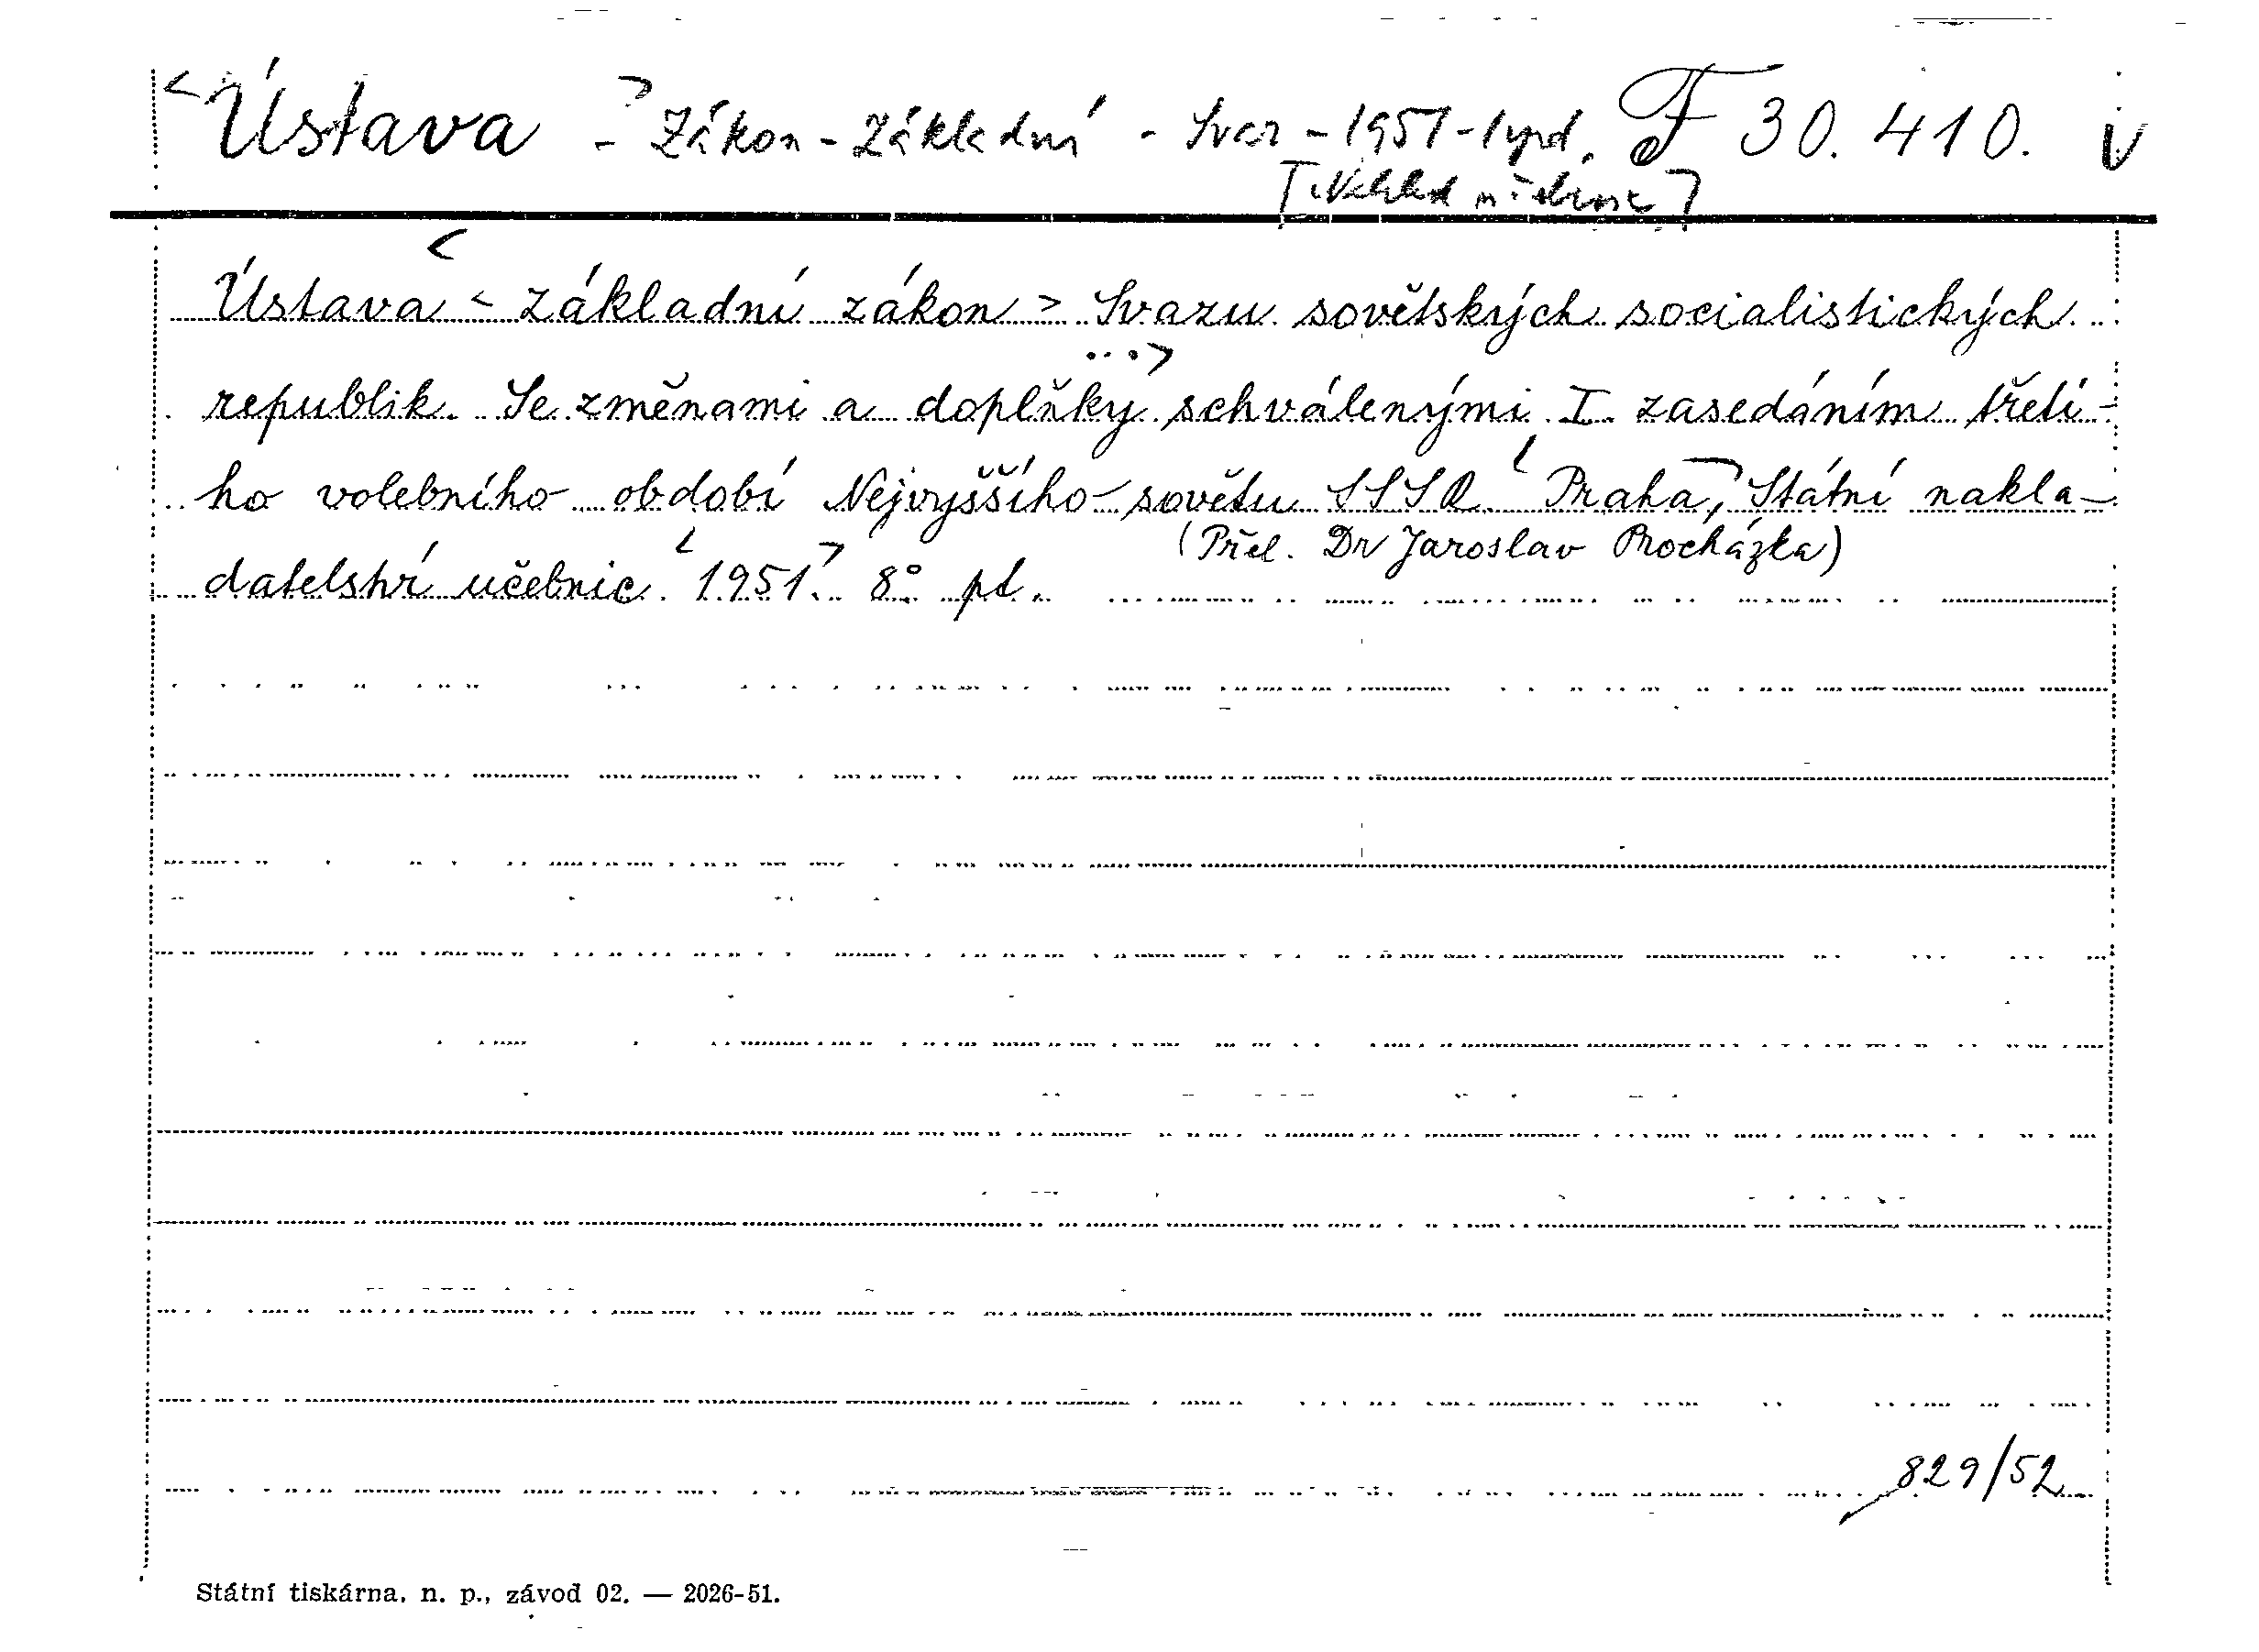 Ústava - Zákon - Základní - Svaz - 1951 - 1 vyd. F 30.410. V
Ústava < základní zákon > Svazu sovětských socialistických
republik. Se změnami a doplňky schválenými I. zasedáním třetí-
ho volebního období Nejvyššího sovětu SSSR. Praha, Státní nakla-
(Přel. Dr Jaroslav Procházka)
datelství učebnic 1951. 8° pt.
829/52
Státní tiskárna, n. p., závod 02. — 2026-51.